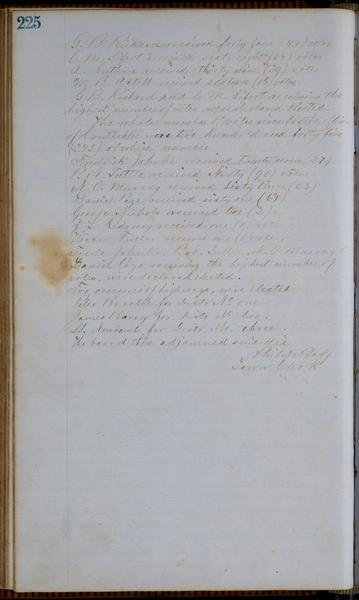 225
G. R. Rickard received forty four (44) votes
C. M. Sifert received sixty eight (68) votes
A. Guthrie received thirty nine (39) votes
M. R. received sixteen (16) votes
G. R. Rickard and C. M. Sifert receiving the
highest number of votes were declared elected.
The whole number of votes given for the office
of Constable were two hundred and forty five
(245) of which number
Fredrick Jahnke received twenty seven (27)
P. A. Tuttle received Ninety (90) votes
N. C. Murray received Sixty three (63)
Daniel Page received sixty one (61)
George Nichols received two (2)
R. L. Ridgway received one (1) vote
Hiram Fuller received one (1) vote.
Fredr Jahnke P. A. Tuttle N. C. Murray &
Daniel Page receiving the highest number of
votes, were declared elected.
For overseers of highways, were elected
Peter for Distr No one.
James Barry for Distr No two.
Newcomb for Distr No three.
The board then adjourned sine die
Philip
Town Clerk